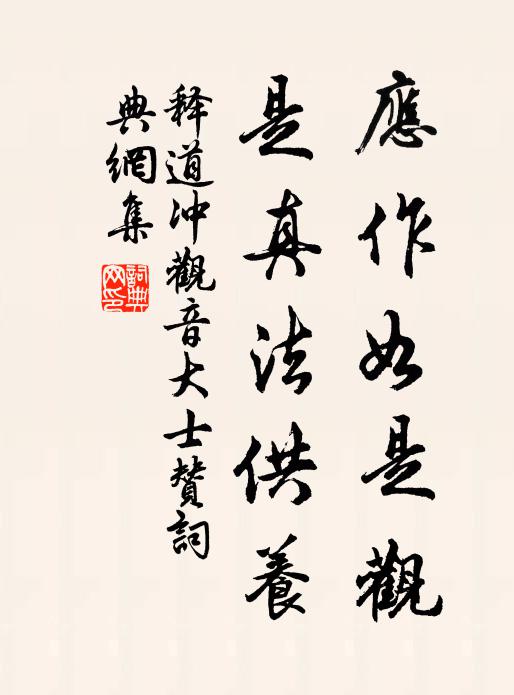 應作如是觀
是真法供養
释道冲觀音大士贊詞
典網集
詞典網印